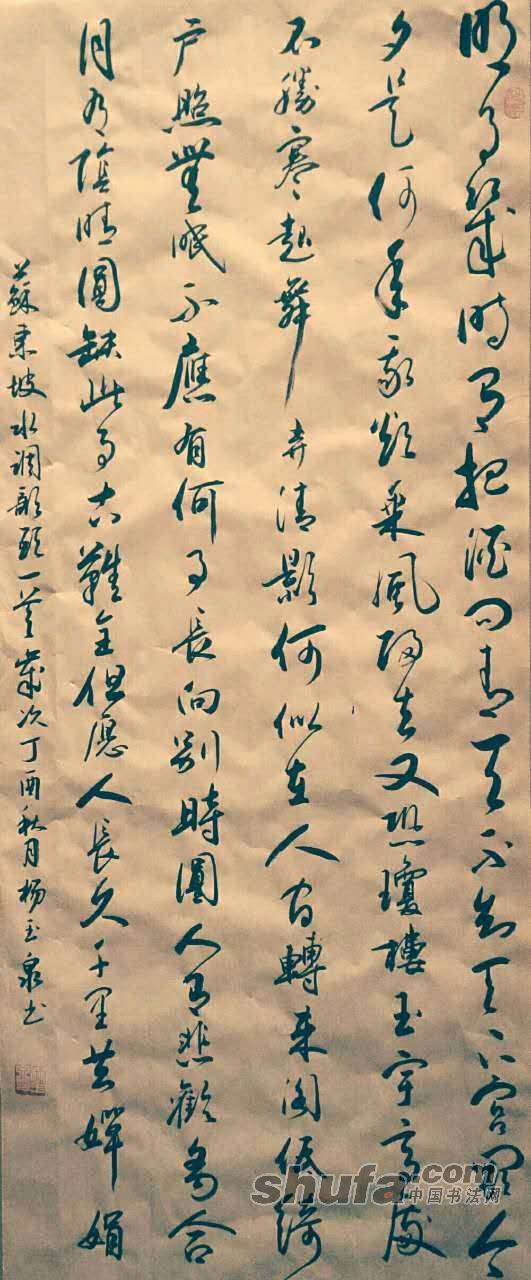 明月幾時有把酒问青天不知天上宫阙今
夕是何年我欲乘風归去又恐瓊樓玉宇高處
不勝寒起舞弄清影何似在人间轉朱阁低绮
户照無眠不應有何事長向别時圓人有悲歡离合
月有陰晴圓缺此事古難全但愿人長久千里共嬋娟
蘇東坡水调歌頭一首歲次丁酉秋月杨玉泉书
shufa.com
中国书法网